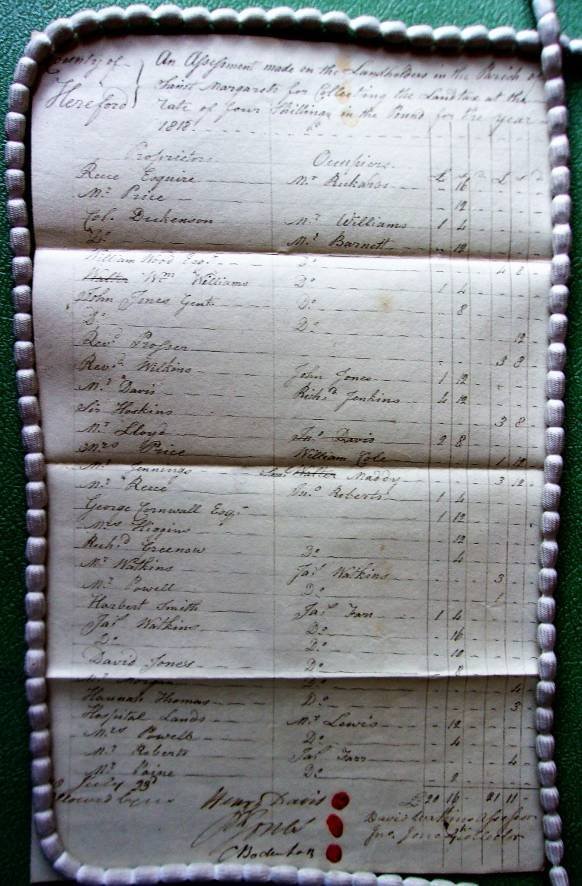 County of
Hereford
An Assessment made on the Landholders in the Parish of
Saint Margarets for Collecting the Landtax at the
rate of four Shillings in the Pound for the year
1815.
Proprietors Occupiers
Reece Esquire Mr Rickards 16
Mr Price 12
Col. Dickenson Mr Williams 1 4
Do Mr Barnett 12
William Wood Esqr Do 4
Walter Wm Williams Do 1 4
John Jones Gent Do 8
Do Do
Revd Prosser 12
Revd Wilkins 3 8
Mr Davis John Jones 1 12
Sir Hoskins Richd Jenkins 4 12
Mr Lloyd 3 8
Mrs Price Jno Davis 2 8
Mr Jennings William Cole 1 12
Mr Reece Walter Maddy 3 12
George Cornwall Esqr Jno Roberts 1 4
Mrs Higgins 1 12
Richd Greenow 12
Mr Watkins Do 4
Mr Powell Jas Watkins 3
Harbert Smith Do 1
Jas Watkins Jas Farr 1 4
Do Do 16
David Jones Do 10
Do 8
Hannah Thomas Do 4
Hospital Lands Do 3
Mrs Powell Mr Lewis 12
Mr Roberts Do 4
Mr Payne Jas Farr 4
Do 2
July 23d
Allowed by us
Henry Davis
£20 16 21 11
David Watkins Assessor
Jno Jones Collector
C Bodenham